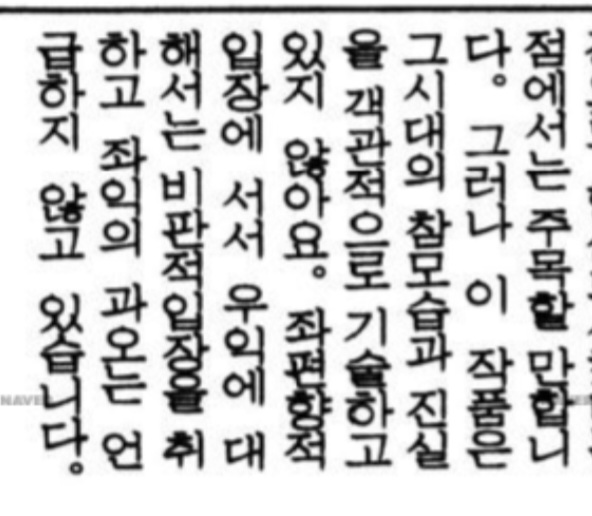 점에서는 주목할 만합니
다。 그러나 이 작품은
그시대의 참모습과 진실
을 객관적으로 기술하고
있지 않아요。 좌편향적
입장에 서서 우익에 대
해서는 비판적입장을 취
하고 좌익의 과오는 언
급하지 않고 있습니다。
NAVER